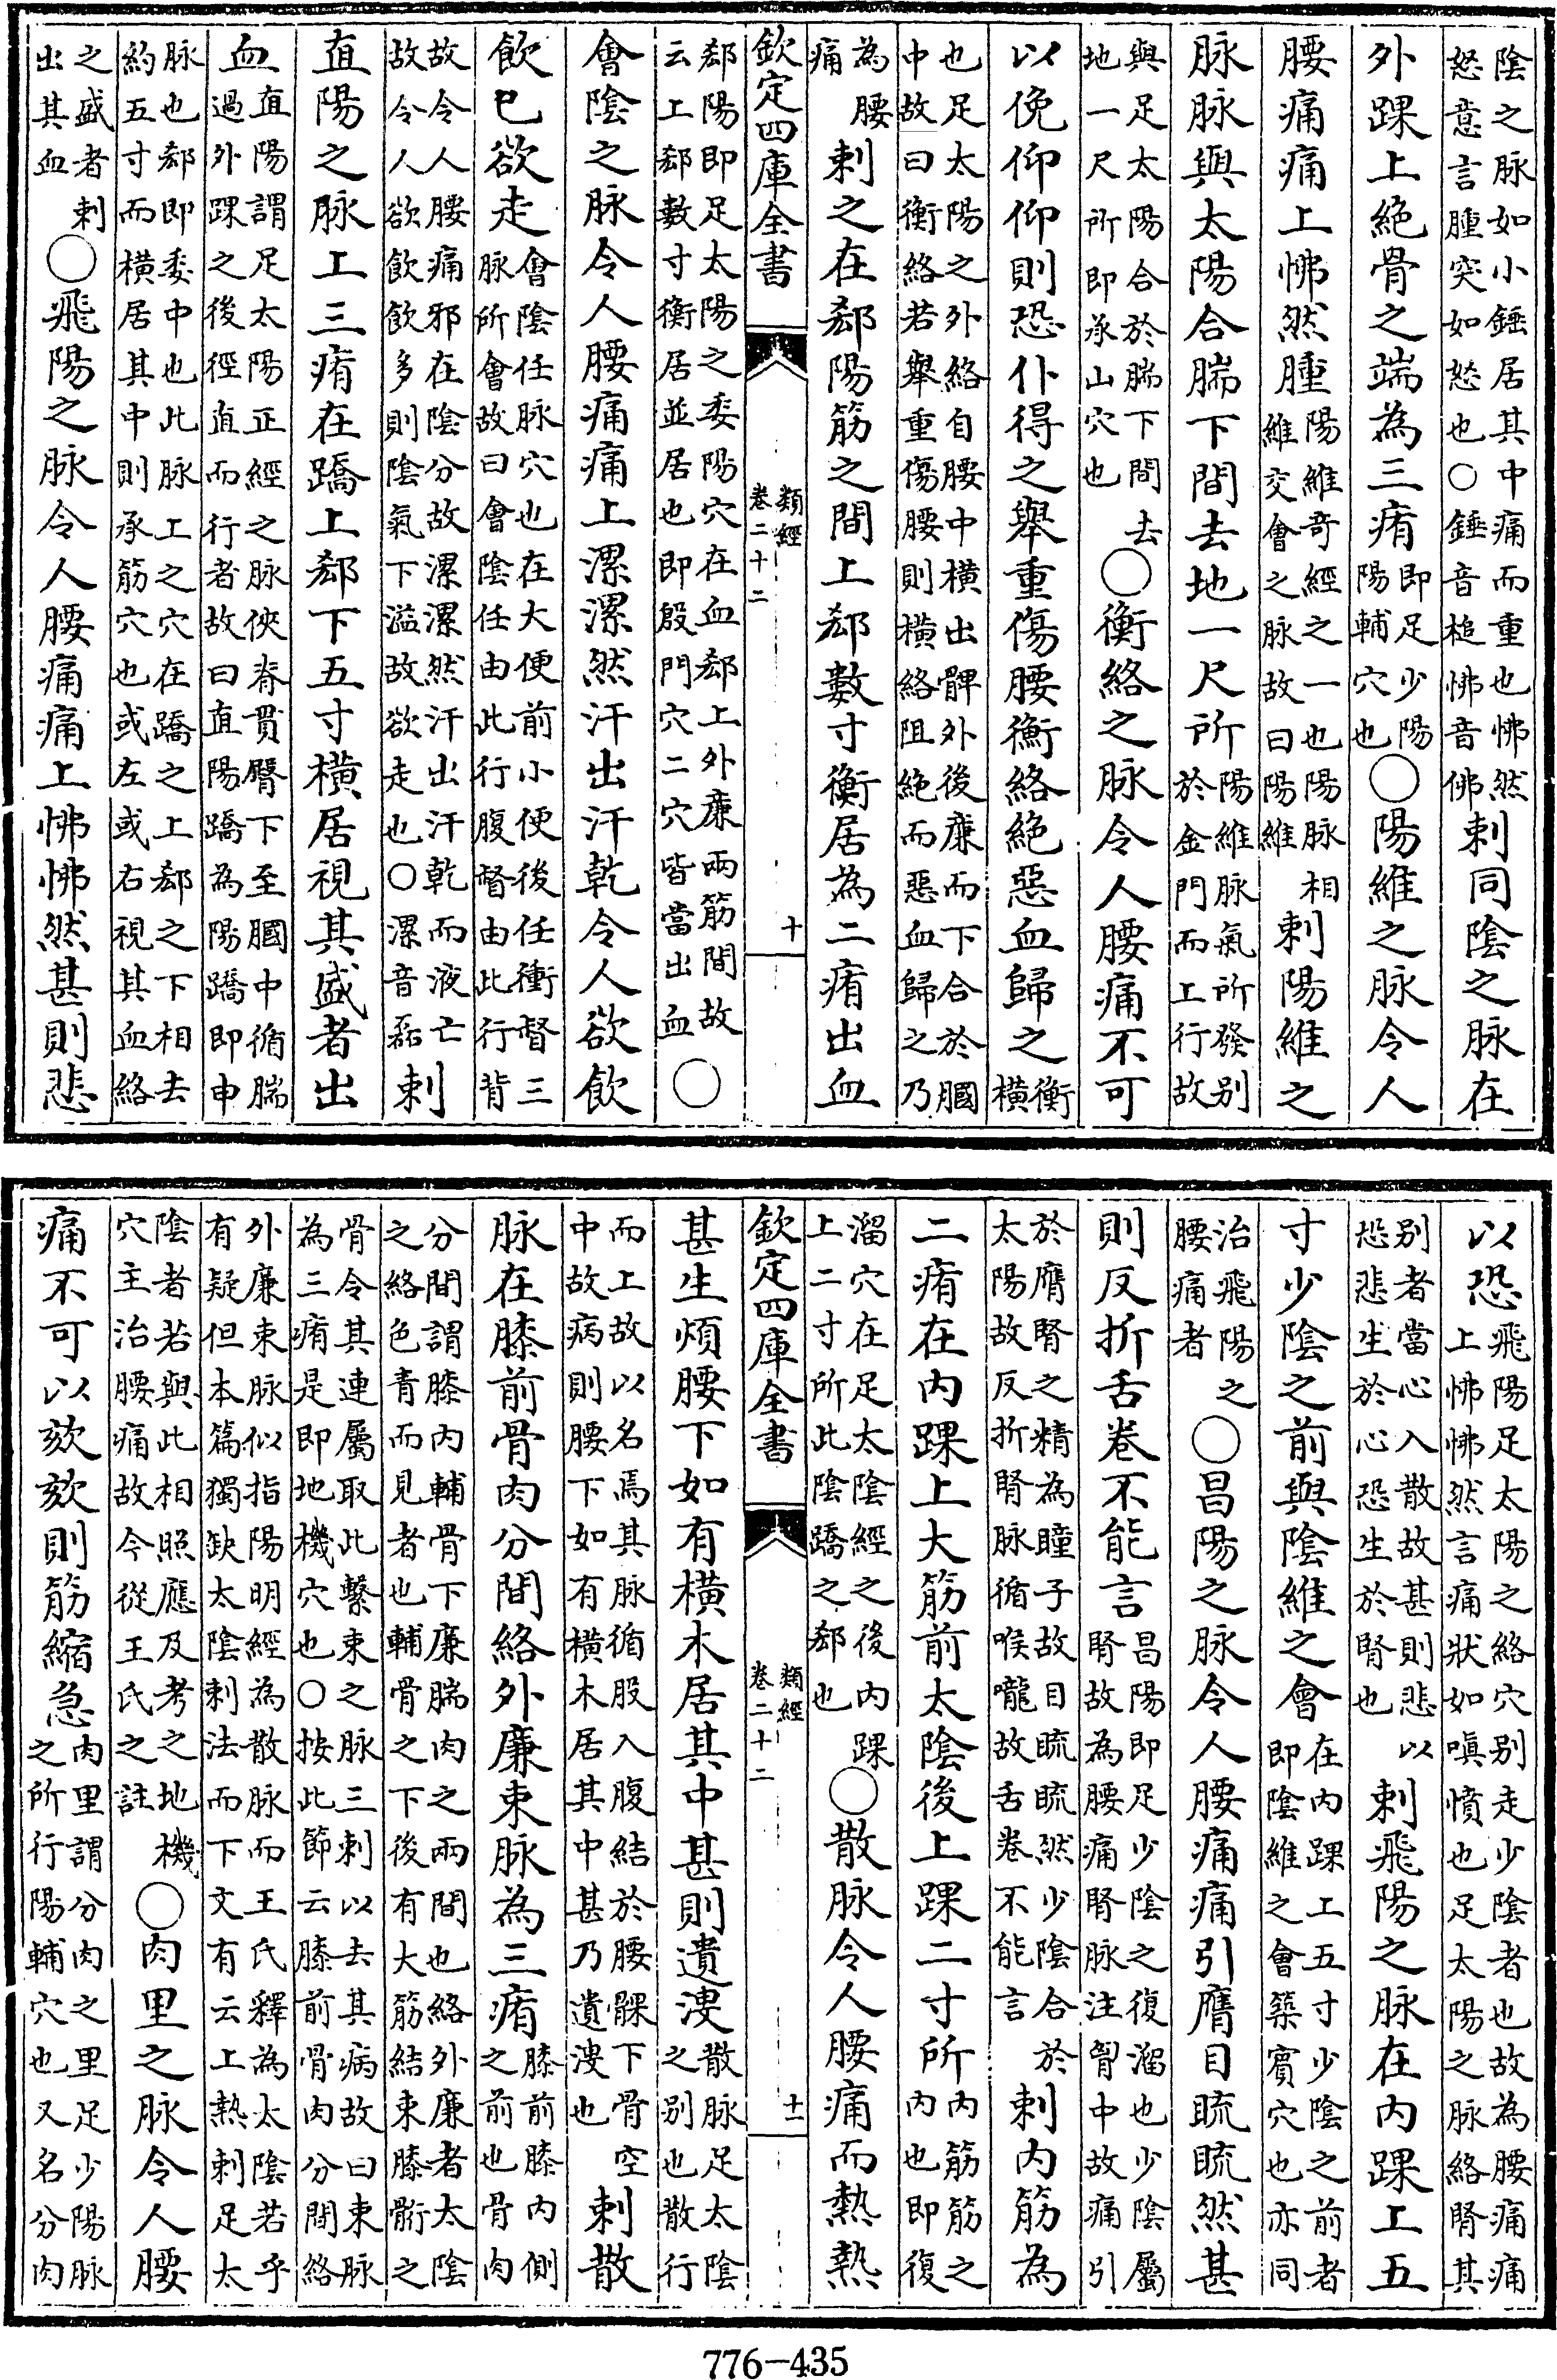 陰之脉如小錘居其中痛而重也怫然怒意言腫突如怒也○錘音槌怫音佛刺同陰之脉在
外踝上絕骨之端為三痏即足少陽陽輔穴也○陽維之脉令人
腰痛痛上怫然腫陽維奇經之一也陽脉相維交會之脉故曰陽維刺陽維之
脉脉與太陽合腨下間去地一尺所陽維脉氣所發别於金門而上行故
與足太陽合於腨下間去地一尺所即承山穴也○衡絡之脉令人腰痛不可
以俛仰仰則恐仆得之舉重傷腰衡絡絕惡血歸之衡橫
也足太陽之外絡自腰中橫出髀外後廉而下合於膕中故曰衡絡若舉重傷腰則橫絡阻絶而惡血歸之乃
為腰痛刺之在郄陽筋之間上郄數寸衡居為二痏出血
欽定四庫全書 類經 卷二十二 十
郄陽即足太陽之委陽穴在血郄上外廉兩筋間故云上郄數寸衡居並居也即殷門穴二穴皆當出血○
會陰之脉令人腰痛痛上漯漯然汗出汗乾令人欲飲
飲已欲走會陰任脉穴也在大便前小便後任衝督三脉所會故曰會陰任由此行腹督由此行背
故令人腰痛邪在陰分故漯漯然汗出汗乾而液亡故令人欲飲飲多則陰氣下溢故欲走也○漯音磊刺
直陽之脉上三痏在蹻上郄下五寸橫居視其盛者出
血直陽謂足太陽正經之脉俠脊貫臀下至膕中循腨過外踝之後徑直而行者故曰直陽蹻為陽蹻即申
脉也郄即委中也此脉上之穴在蹻之上郄之下相去約五寸而橫居其中則承筋穴也或左或右視其血絡
之盛者刺出其血○飛陽之脉令人腰痛痛上怫怫然甚則悲
以恐飛陽足太陽之絡穴别走少陰者也故為腰痛痛上怫怫然言痛狀如嗔憤也足太陽之脉絡腎其
别者當心入散故甚則悲以恐悲生於心恐生於腎也刺飛陽之脉在内踝上五
寸少陰之前與陰維之會在内踝上五寸少陰之前者即陰維之會築賓穴也亦同
治飛陽之腰痛者○昌陽之脉令人腰痛痛引膺目䀮䀮然甚
則反折舌卷不能言昌陽即足少陰之復溜也少陰屬腎故為腰痛腎脉注胷中故痛引
於膺腎之精為瞳子故目䀮䀮然少陰合於太陽故反折腎脉循喉嚨故舌卷不能言刺内筋為
二痏在内踝上大筋前太陰後上踝二寸所内筋筋之内也即復
溜穴在足太陰經之後内踝上二寸所此陰蹻之郄也○散脉令人腰痛而熱熱
欽定四庫全書 類經 卷二十二 十一
甚生煩腰下如有橫木居其中甚則遺溲散脉足太陰之别也散行
而上故以名焉其脉循股入腹結於腰髁下骨空中故病則腰下如有橫木居其中甚乃遺溲也刺散
脉在膝前骨肉分間絡外廉束脉為三痏膝前膝内側之前也骨肉
分間謂膝内輔骨下廉腨肉之兩間也絡外廉者太陰之絡色青而見者也輔骨之下後有大筋結束膝䯒之
骨令其連屬取此繫束之脉三刺以去其病故曰束脉為三痏是即地機穴也○按此節云膝前骨肉分間絡
外廉束脉似指陽明經為散脉而王氏釋為太陰若乎有疑但本篇獨缺太陰刺法而下文有云上熱刺足太
陰者若與此相照應及考之地機穴主治腰痛故今從王氏之註○肉里之脉令人腰
痛不可以欬欬則筋縮急肉里謂分肉之里足少陽脉之所行陽輔穴也又名分肉
776-435